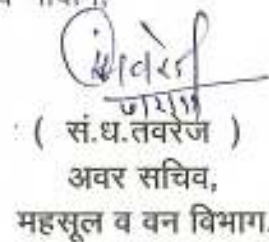 ( सं.ध.तवरेज )
अवर सचिव,
महसूल व वन विभाग